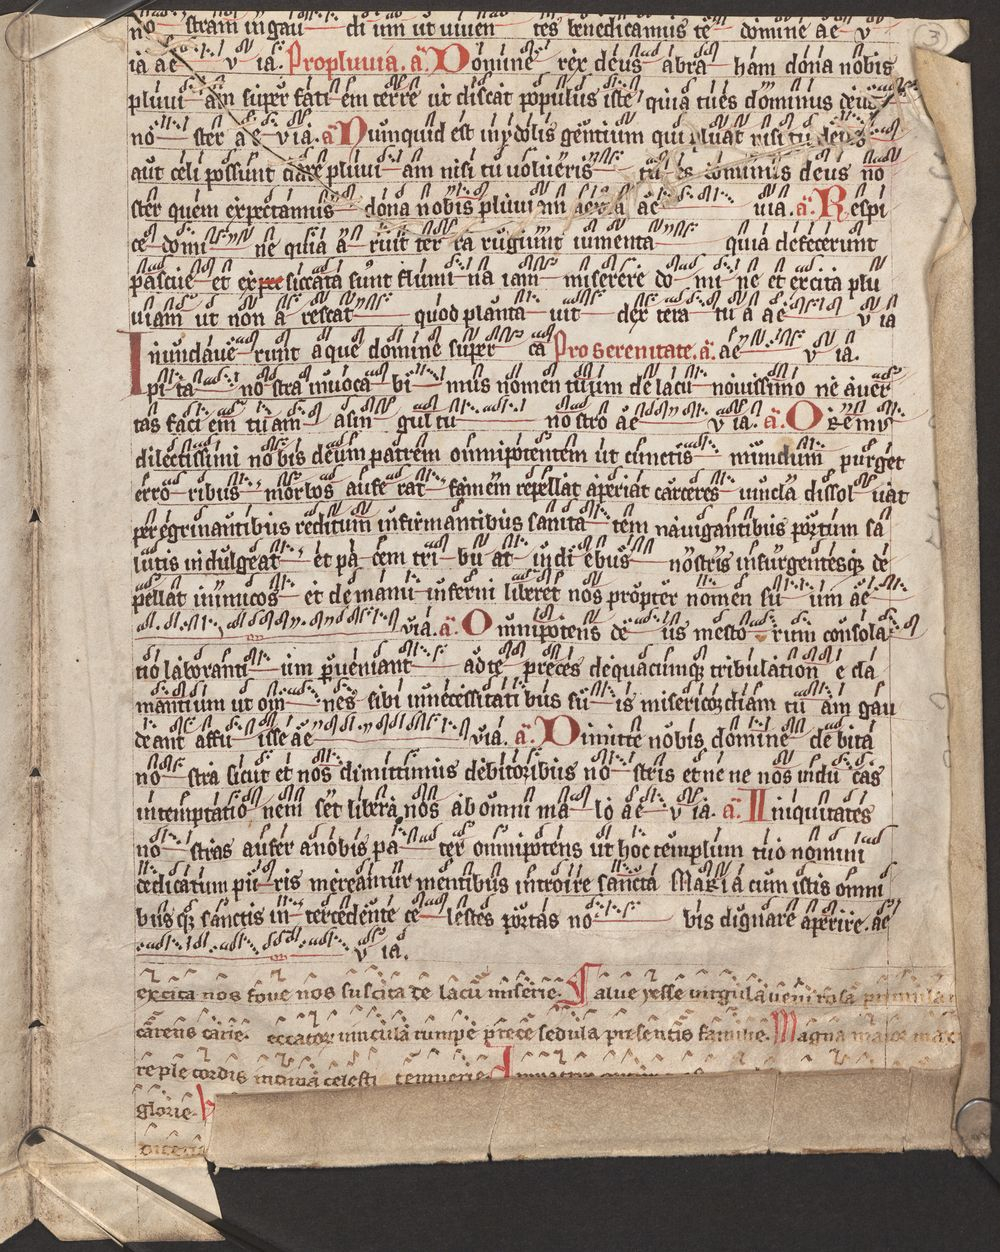 no stram in gau di um ut viuen tes benedicamus te domine ae v
ia ae v ia. Pro pluuia. a. Domine rex deus abra ham dona nobis
pluui am super faci em terre ut discat populus iste quia tu es dominus deus
no ster ae via. a Numquid est in ydolis gentium qui pluat nisi tu deus
aut celi possunt dare pluui am nisi tu uolueris tu es dominus deus no
ster quem expectamus dona nobis pluui am ae uia. a. Respi
ce domi ne quia a ruit ter ra rugiunt iumenta quia defecerunt
pascue et ex siccata sunt flumi na iam miserere do mi ne et excita plu
uiam ut non a rescat quod planta uit dex tera tu a ae v ia
Inundaue runt aque domine super ca Pro serenitate. a. ae v ia.
pi ta no stra inuoca bi mus nomen tuum de lacu nouissimo ne auer
tas faci em tuam a sin gul tu no stro ae v ia. a. Oremus
dilectissimi nobis deum patrem omnipotentem ut cunctis mundum purget
erro ribus morbos aufe rat famem repellat aperiat carceres uincla dissol uat
peregrinantibus reditum infirmantibus sanita tem nauigantibus portum sa
lutis indulgeat et pa cem tri bu at in di ebus nostris insurgentesq; re
pellat inimicos et de manu inferni liberet nos propter nomen su um ae
via. a. O mnipotens de us mesto rum consola
tio laboranti um p ueniant ad te preces de quacumq; tribulation e cla
mantium ut om nes sibi in necessitati bus su is misericordiam tu am gau
deant affu isse ae via. a. Dimitte nobis domine debita
no stra sicut et nos dimittimus debitoribus no stris et ne ne nos indu cas
in temptatio nem set libera nos ab omni ma lo ae v ia. a. Iniquitates
no stras aufer a nobis pa ter omnipotens ut hoc templum tuo nomini
dedicatum pu ris mereamur mentibus introire sancta Maria cum istis omni
busq; sanctis in tercedente ce lestes portas no bis dignare aperire. ae
v ia.
excita nos foue nos suscita de lacu miserie. Salue yesse uirgula ueni rosa primula
carens carie. peccator uincula rumpe prece sedula presentis familie. Magna maior
reple cordis celesti
glorie.